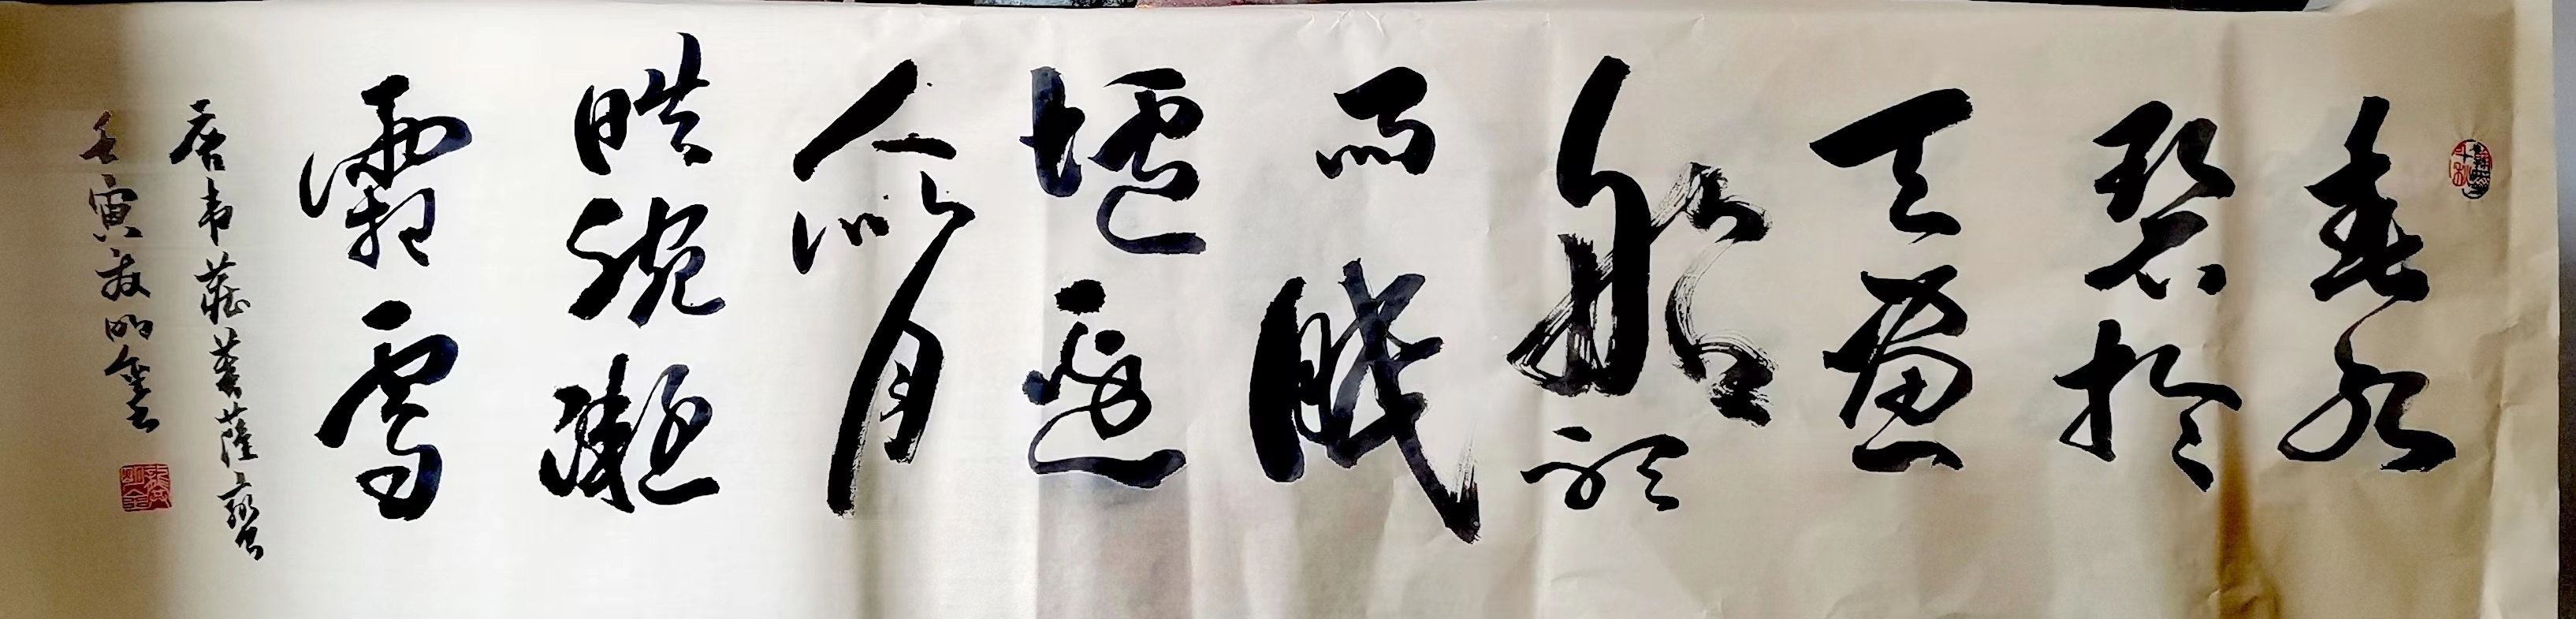 春水
碧於
天畫
船聽
雨眠
壚邊
人似月
皓腕凝
霜雪
唐韦莊菩薩蠻
壬寅 明